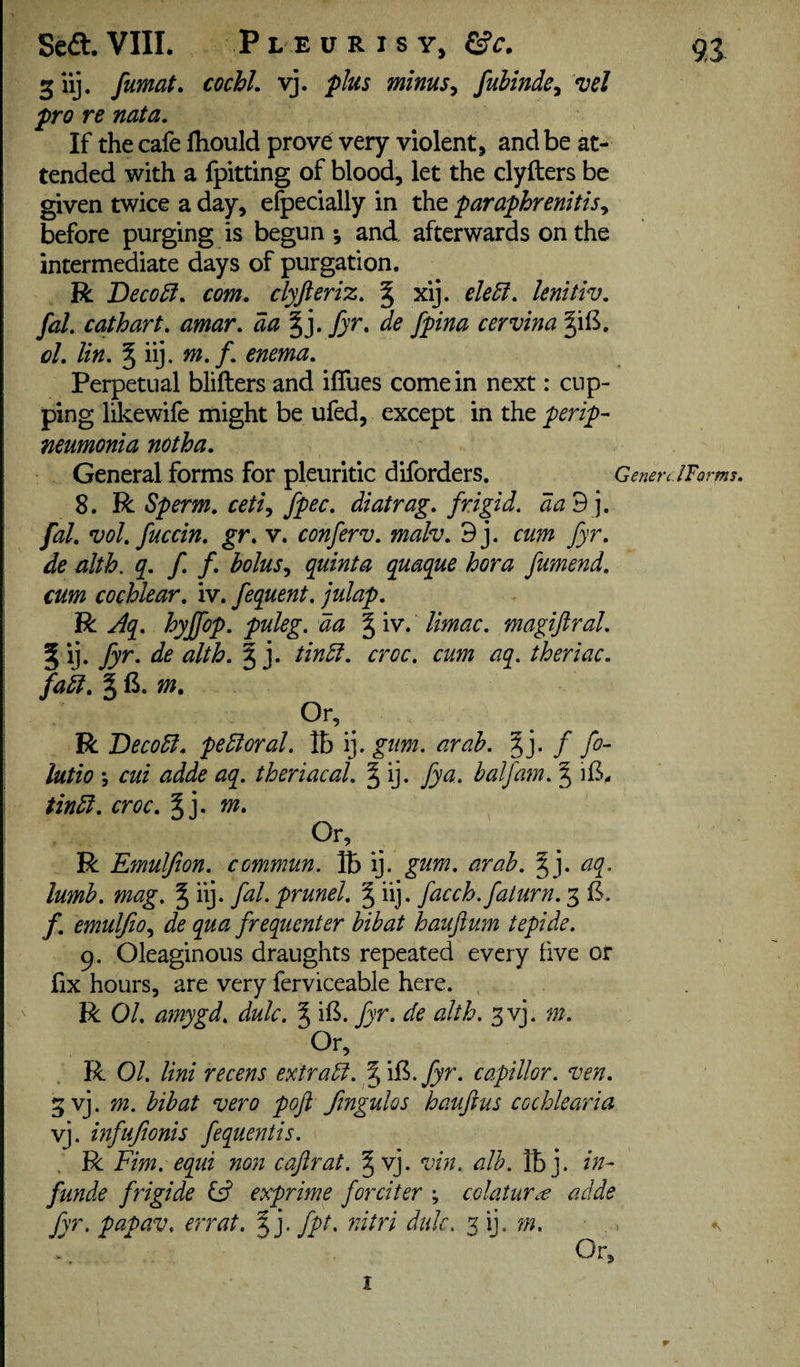 Sect. VIII. PLEURISY, &c. 93
ʒ iij. ſumat. cochl. vj. plus minus, ſubinde, vel
pro re nata.
If the caſe ſhould prove very violent, and be at-
tended with a ſpitting of blood, let the clyſters be
given twice a day, eſpecially in the paraphrenitis,
before purging is begun ; and afterwards on the
intermediate days of purgation.
℞ Decoct. com. clyſteriz. ℥ xij. elect. lenitiv.
ſal. cathart. amar. āa ℥j. ſyr. de ſpina cervina ℥iß.
ol. lin. ℥ iij. m. f. enema.
Perpetual bliſters and iſſues come in next : cup-
ping likewiſe might be uſed, except in the perip-
neumonia notha.
General forms for pleuritic diſorders. General Forms.
8. ℞ Sperm. ceti, ſpec. diatrag. frigid. āa ℈ j.
ſal. vol. ſuccin. gr. v. conſerv. malv. ℈ j. cum ſyr.
de alth. q. ſ. f. bolus, quinta quaque hora ſumend.
cum cochlear. iv. ſequent. julap.
℞ Aq. hyſſop. puleg. āa ℥ iv. limac. magiſtral.
℥ ij. ſyr. de alth. ℥ j. tinct. croc. cum aq. theriac.
fact. ℥ ß. m.
Or,
℞ Decoct. pectoral. ℔ ij. gum. arab. ℥j. f ſo-
lutio ; cui adde aq. theriacal. ℥ ij. ſya. balſam. ℥ iß.
tinct. croc. ℥ j. m.
Or,
℞ Emulſion. commun. ℔ ij. gum. arab. ℥j. aq.
lumb. mag. ℥ iij. ſal. prunel. ℥ iij. ſacch. ſaturn. ʒ ß.
f. emulſio, de qua frequenter bibat hauſtum tepide.
9. Oleaginous draughts repeated every five or
ſix hours, are very ſerviceable here.
℞ Ol. amygd. dulc. ℥ iß. ſyr. de alth. ʒvj. m.
Or,
℞ Ol. lini recens extract. ℥ iß. ſyr. capillor. ven.
ʒ vj. m. bibat vero poſt ſingulos hauſtus cochlearia
vj. infuſionis ſequentis.
℞ Fim. equi non caſtrat. ℥ vj. vin. alb. ℔ j. in-
funde frigide & exprime forciter ; colaturæ adde
ſyr. papav. errat. ℥ j. ſpt. nitri dulc. ʒ ij. m.
Or,
I